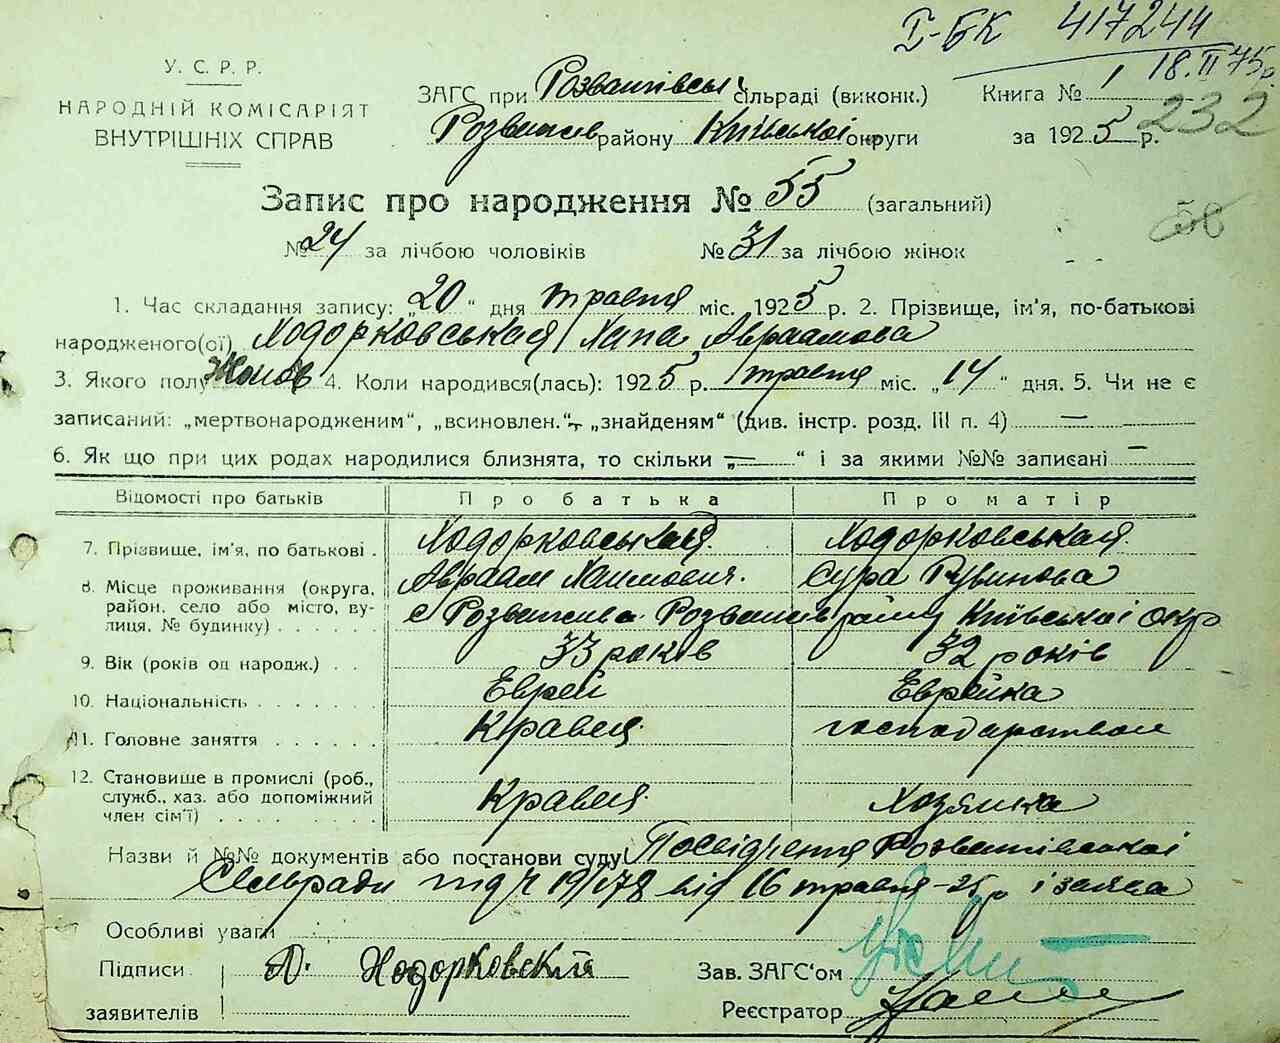 І-БК 417244
18.II 75р.
У. С. Р. Р.
НАРОДНІЙ КОМІСАРІЯТ
ВНУТРІШНІХ СПРАВ
ЗАГС при Розважівськ сільраді (виконк.) Книга № 1
Розважів району Київської округи за 1925 р. 232
Запис про народження № 55 (загальний)
56
№ 24 за лічбою чоловіків № 31 за лічбою жінок
1. Час складання запису: „20“ дня травня міс. 1925 р. 2. Прізвище, ім'я, по-батькові
народженого(ої) Ходорковськая Хана Авраамова
3. Якого полу Жінов 4. Коли народився(лась): 1925 р. травня міс. „14“ дня. 5. Чи не є
записаний: „мертвонародженим“, „всиновлен.“, „знайденям“ (див. інстр. розд. III п. 4) —
6. Як що при цих родах народилися близнята, то скільки „—“ і за якими №№ записані —
Відомості про батьків Про батька Про матір
7. Прізвище, ім'я, по батькові . Ходорковський Ходорковськая
Авраам Хаимович. Сура Рувинова
8. Місце проживання (округа, район, село або місто, вулиця, № будинку) . . . . . с Розважива Розважив району Київської окр
9. Вік (років од народж.) . . 33 років 32 років
10. Національність . . . . . . . Еврей Еврейка
11. Головне заняття . . . . . . Кравец господарством
12. Становище в промислі (роб., служб., хаз. або допоміжний член сім'ї) . . . . . . . . Кравец Хозяика
Назви й №№ документів або постанови суду Посвідчення Розважівської
Сельради під ч 19/178 від 16 травня - 25р і заява
Особливі уваги
Підписи А. Ходорковский Зав. ЗАГС'ом
заявителів Реєстратор